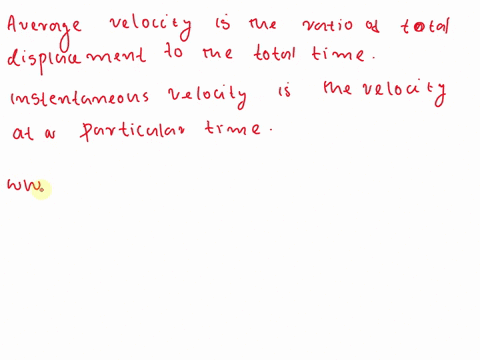 Average velocity is the ratio of total
displacement to the total time.
instentaneous velocity is the velocity
at a particular time.
WW